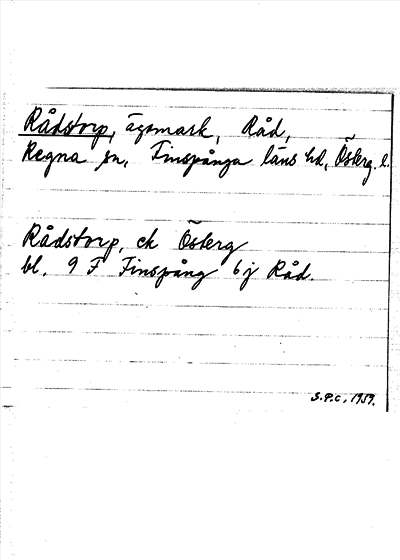 Rådstorp, ägomark, Råd,
Regna sn, Finspånga läns hd, Österg. l.
Rådstorp, ek Österg
bl. 9 F Finspång 6 j Råd.
S.P.C., 1959.